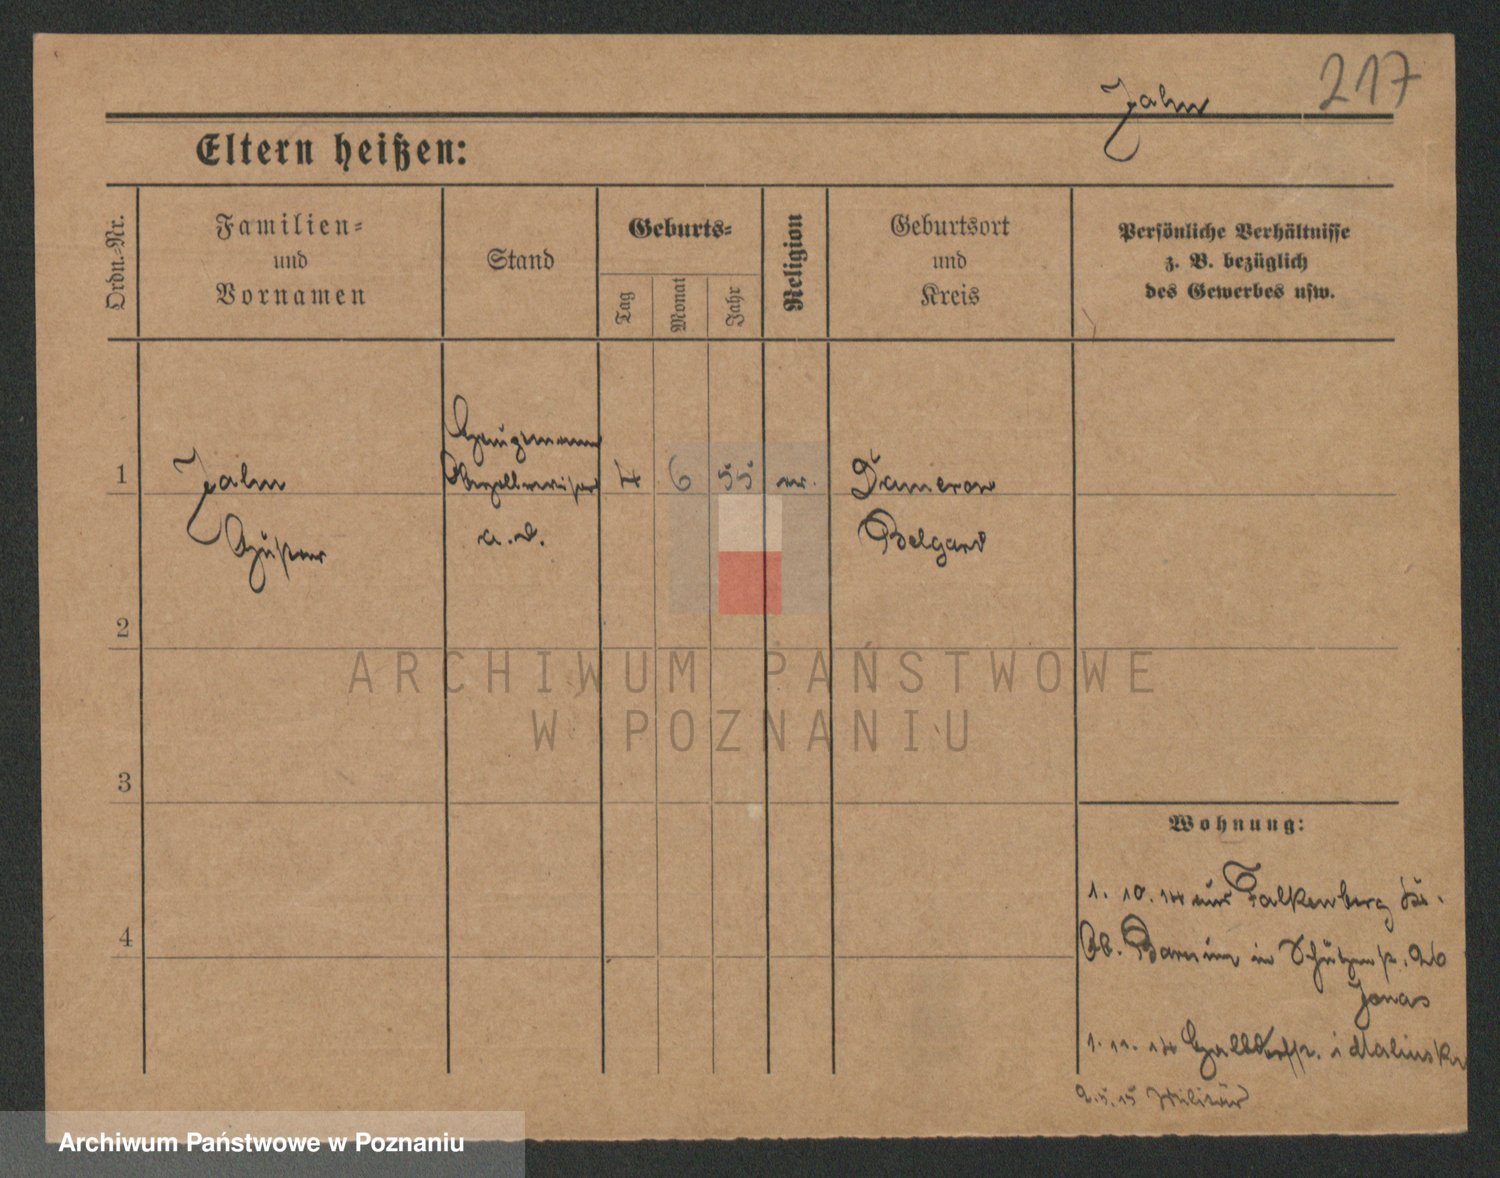 217
Jahn
Eltern heißen:
Ordn.-Nr.
Familien-
und
Vornamen
Stand
Geburts-
Tag
Monat
Jahr
Religion
Geburtsort
und
Kreis
Persönliche Verhältnisse
z. B. bezüglich
des Gewerbes usw.
1
Jahn
Gustav
a. D.
4
6
55
ev.
Damerow
Belgard
2
3
4
Wohnung:
1. 10. 14 aus Falkenberg
Ob. Barnim in Schützenstr. 26
Jonas
1. 11. 14
2. 5. 15 Militär
ARCHIWUM PAŃSTWOWE
W POZNANIU
Archiwum Państwowe w Poznaniu